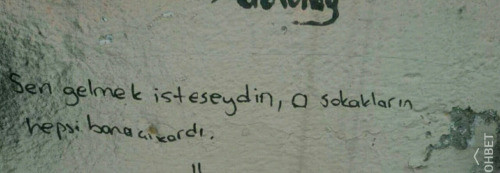 Sen gelmek isteseydin, o sokakların
hepsi bana çıkardı.
OHBET